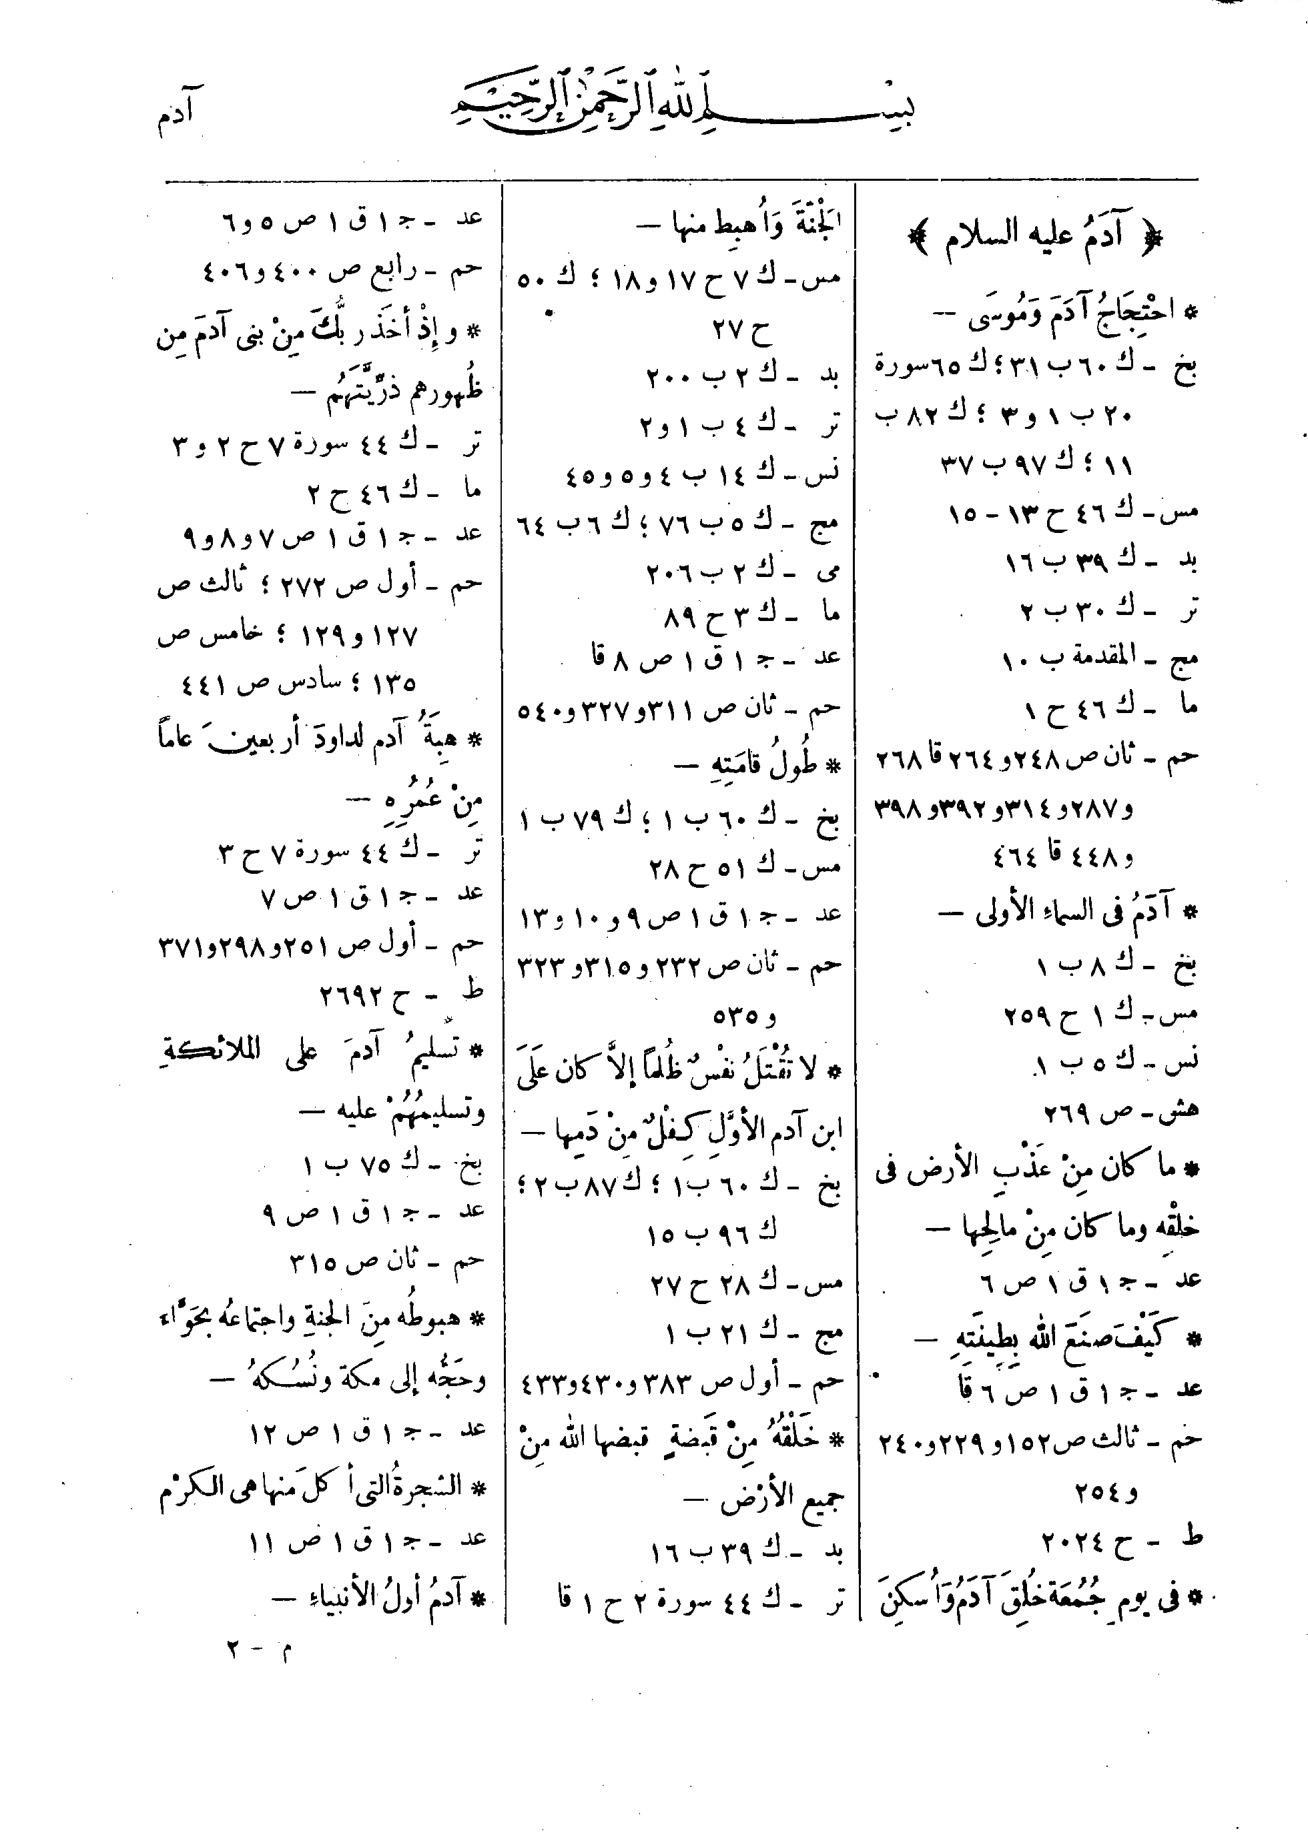 بِسْمِ اللهِ الرَّحْمٰنِ الرَّحِيمِ
آدم
﴿ آدَمُ عليه السلام ﴾
* احْتِجَاجُ آدَمَ وَمُوسَى —
بخ - ك ٦٠ ب ٣١؛ ك ٦٥ سورة
٢٠ ب ١ و ٣ ؛ ك ٨٢ ب
١١ ؛ ك ٩٧ ب ٣٧
مس - ك ٤٦ ح ١٣ - ١٥
بد - ك ٣٩ ب ١٦
تر - ك ٣٠ ب ٢
مج - المقدمة ب ١٠
ما - ك ٤٦ ح ١
حم - ثان ص ٢٤٨ و ٢٦٤ قا ٢٦٨
و ٢٨٧ و ٣١٤ و ٣٩٢ و ٣٩٨
و ٤٤٨ قا ٤٦٤
* آدَمُ فى السماءِ الأولى —
بخ - ك ٨ ب ١
مس - ك ١ ح ٢٥٩
نس - ك ٥ ب ١
هش - ص ٢٦٩
* ما كان مِنْ عَذْبِ الأرض فى
خلْقِه وما كان مِنْ مالِحِها —
عد - ج ١ ق ١ ص ٦
* كَيْفَ صنَعَ الله بِطِينَتِهِ —
عد - ج ١ ق ١ ص ٦ قا
حم - ثالث ص ١٥٢ و ٢٢٩ و ٢٤٠
و ٢٥٤
ط - ح ٢٠٢٤
* فى يومِ جُمُعَة خُلِقَ آدَمُ وَأُسكِنَ
الجْنَّةَ وَأُهبِط منها —
مس - ك ٧ ح ١٧ و ١٨ ؛ ك ٥٠
ح ٢٧
بد - ك ٢ ب ٢٠٠
تر - ك ٤ ب ١ و ٢
نس - ك ١٤ ب ٤ و ٥ و ٤٥
مج - ك ٥ ب ٧٦ ؛ ك ٦ ب ٦٤
مى - ك ٢ ب ٢٠٦
ما - ك ٣ ح ٨٩
عد - ج ١ ق ١ ص ٨ قا
حم - ثان ص ٣١١ و ٣٢٧ و ٥٤٠
* طُولُ قامَتِهِ —
بخ - ك ٦٠ ب ١ ؛ ك ٧٩ ب ١
مس - ك ٥١ ح ٢٨
عد - ج ١ ق ١ ص ٩ و ١٠ و ١٣
حم - ثان ص ٢٣٢ و ٣١٥ و ٣٢٣
و ٥٣٥
* لا تُقْتَلُ نفْسٌ ظُلماً إلاَّ كان عَلَى
ابن آدم الأوَّلِ كِفْلٌ مِنْ دَمِها —
بخ - ك ٦٠ ب ١ ؛ ك ٨٧ ب ٢ ؛
ك ٩٦ ب ١٥
مس - ك ٢٨ ح ٢٧
مج - ك ٢١ ب ١
حم - أول ص ٣٨٣ و ٤٣٠ و ٤٣٣
* خَلْقُهُ مِنْ قَبضةٍ قبضها الله مِنْ
جميع الأرْض —
بد - ك ٣٩ ب ١٦
تر - ك ٤٤ سورة ٢ ح ١ قا
عد - ج ١ ق ١ ص ٥ و ٦
حم - رابع ص ٤٠٠ و ٤٠٦
* وإِذْ أخَذَ ربُّكَ مِنْ بنى آدمَ مِن
ظُهورهم ذرِّيَّتَهُم —
تر - ك ٤٤ سورة ٧ ح ٢ و ٣
ما - ك ٤٦ ح ٢
عد - ج ١ ق ١ ص ٧ و ٨ و ٩
حم - أول ص ٢٧٢ ؛ ثالث ص
١٢٧ و ١٢٩ ؛ خامس ص
١٣٥ ؛ سادس ص ٤٤١
* هِبَةُ آدم لداودَ أربعينَ عاماً
مِنْ عُمُرِهِ —
تر - ك ٤٤ سورة ٧ ح ٣
عد - ج ١ ق ١ ص ٧
حم - أول ص ٢٥١ و ٢٩٨ و ٣٧١
ط - ح ٢٦٩٢
* تسليمُ آدمَ على الملائكةِ
وتسليمُهُمْ عليه —
بخ - ك ٧٥ ب ١
عد - ج ١ ق ١ ص ٩
حم - ثان ص ٣١٥
* هبوطُه مِنَ الجنةِ واجتماعُه بحَوَّاء
وحَجُّه إلى مكة ونُسُكهُ —
عد - ج ١ ق ١ ص ١٢
* الشجرةُ التى أكلَ منها هى الكرْم
عد - ج ١ ق ١ ص ١١
* آدمُ أولُ الأنبياءِ —
م - ٢